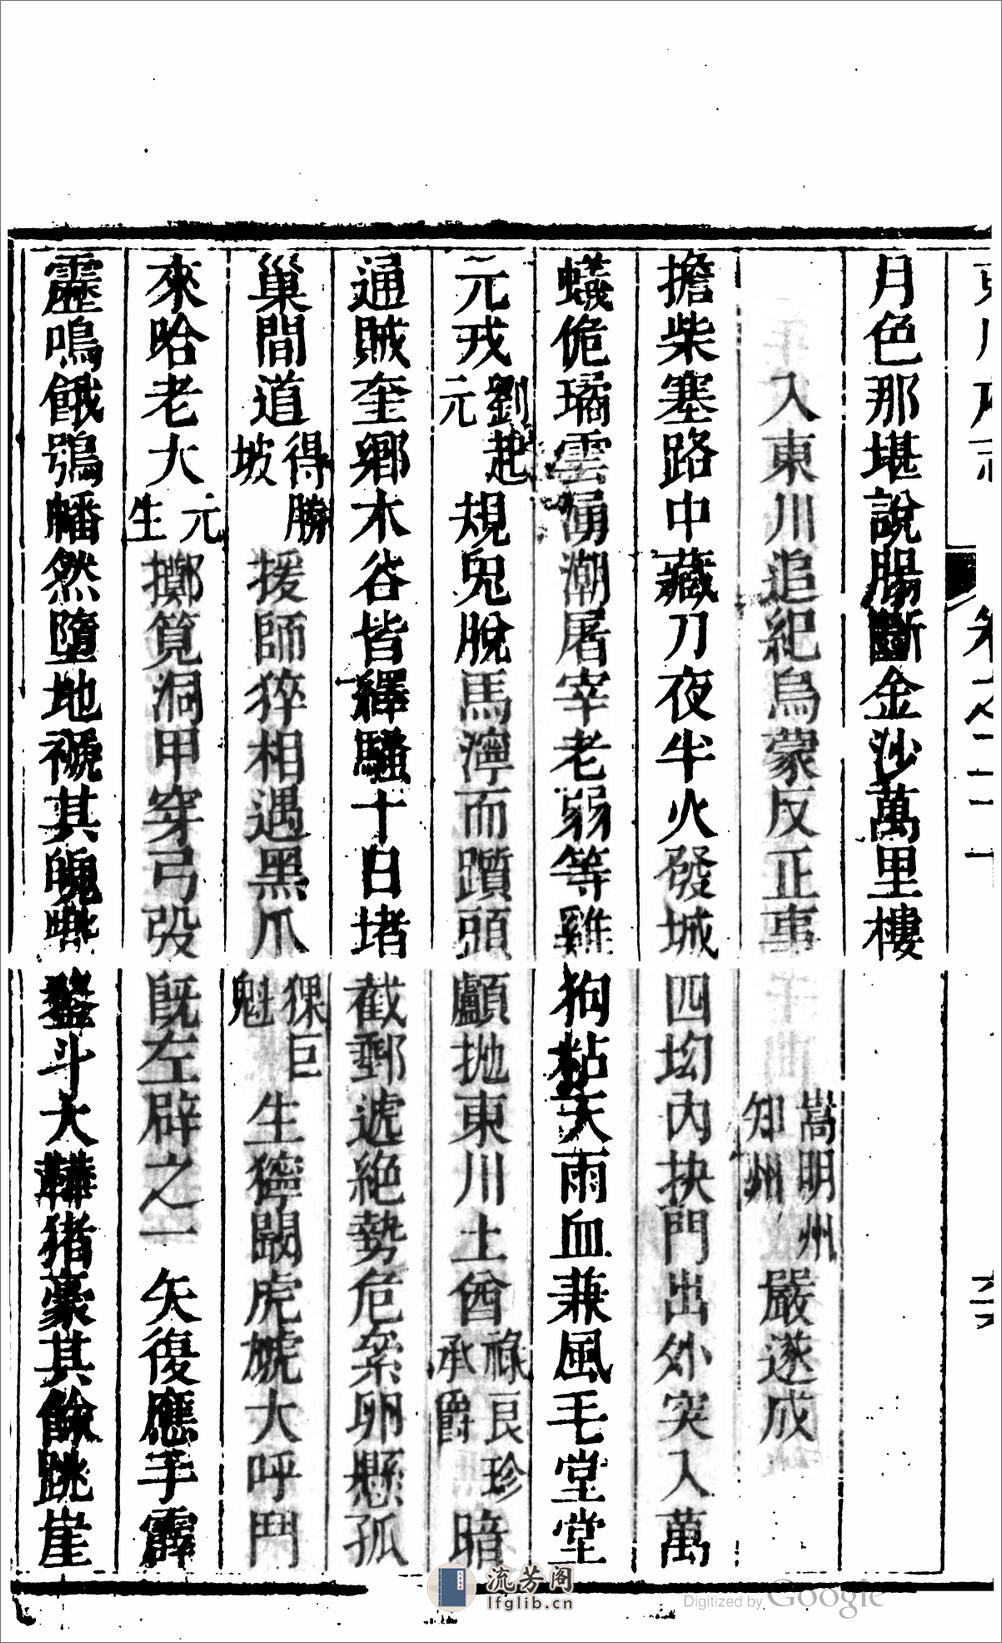 月色那堪說腸斷金沙萬里樓
入東川追紀烏蒙反正事 嵩明州知州 嚴遂成
擔柴塞路中藏刀夜半火發城四㘭內抉門出外突入萬
蟻佹璚雲湧潮屠宰老弱等雞狗粘天雨血兼風毛堂堂
元戎劉起元規兔脫馬濘而躓頭顱拋東川土酋祿良珍承爵暗
通賊奎鄉木谷皆繹騷十日堵截郵遞絕勢危絫卵懸孤
巢間道得勝坡援師猝相遇黑爪猓巨魁生獰闞虎虓大呼鬥
來哈老大元生擲筧洞甲穿弓弢既左辟之一矢復應手霹
靂鳴餓鴞幡然墮地褫其魄斗大豬豪其餘跳崖
卷之二十
Digitized by Google
流芳阁
lfglib.cn